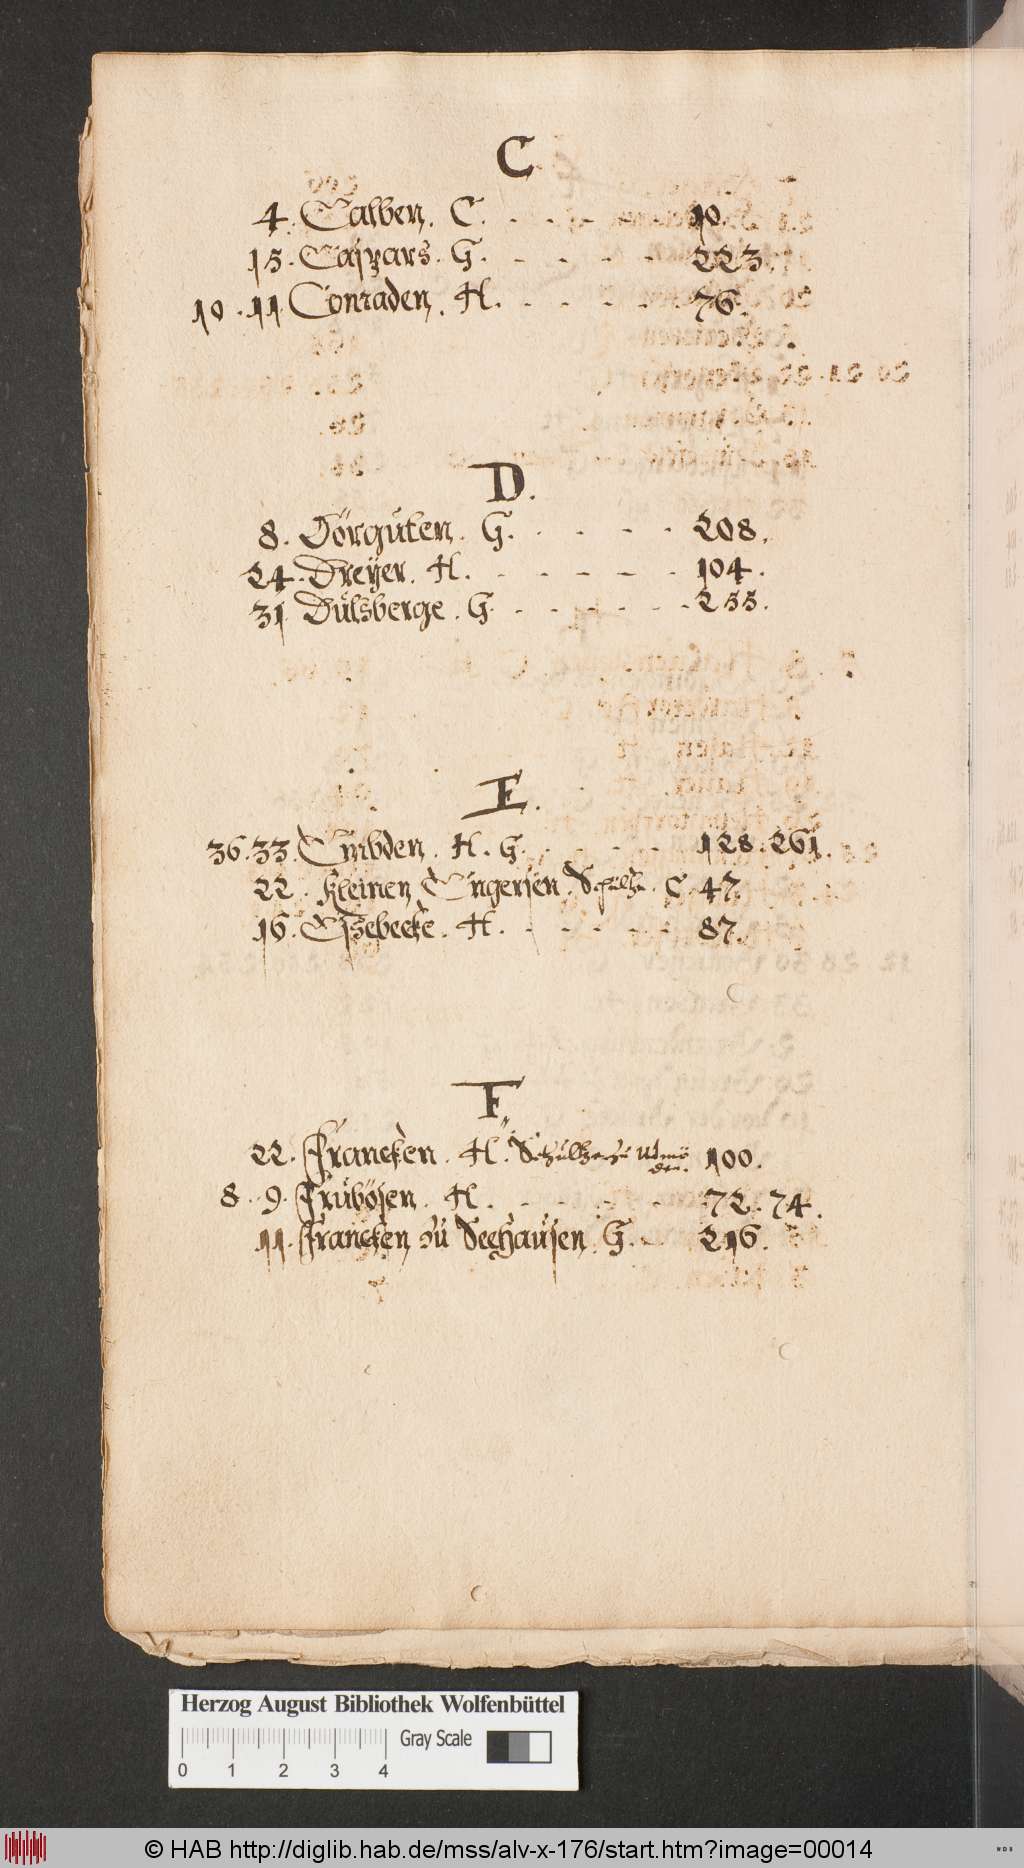 C
4. Calben. C. - - - - 10.
15. Caspars. G. - - - - - 223.
10. 11. Conraden. H. - - - - - 76.
D.
8. Dörgüten. G. - - - - 208.
24. Dreÿer. H. - - - - - 104.
31. Dülsberge. G. - - - - - 255.
E.
36. 33. Embden. H. G. - - - - 128. 261.
22. Kleinen Engersen. C. 47.
16. Etzebecke. H. - - - - - 87.
F.
22. Francken. H. 100.
8. 9. Frübösen. H. - - - - - 72. 74.
11. Francken zu Seehausen. G. - 216.
Herzog August Bibliothek Wolfenbüttel
Gray Scale
0 1 2 3 4
© HAB http://diglib.hab.de/mss/alv-x-176/start.htm?image=00014